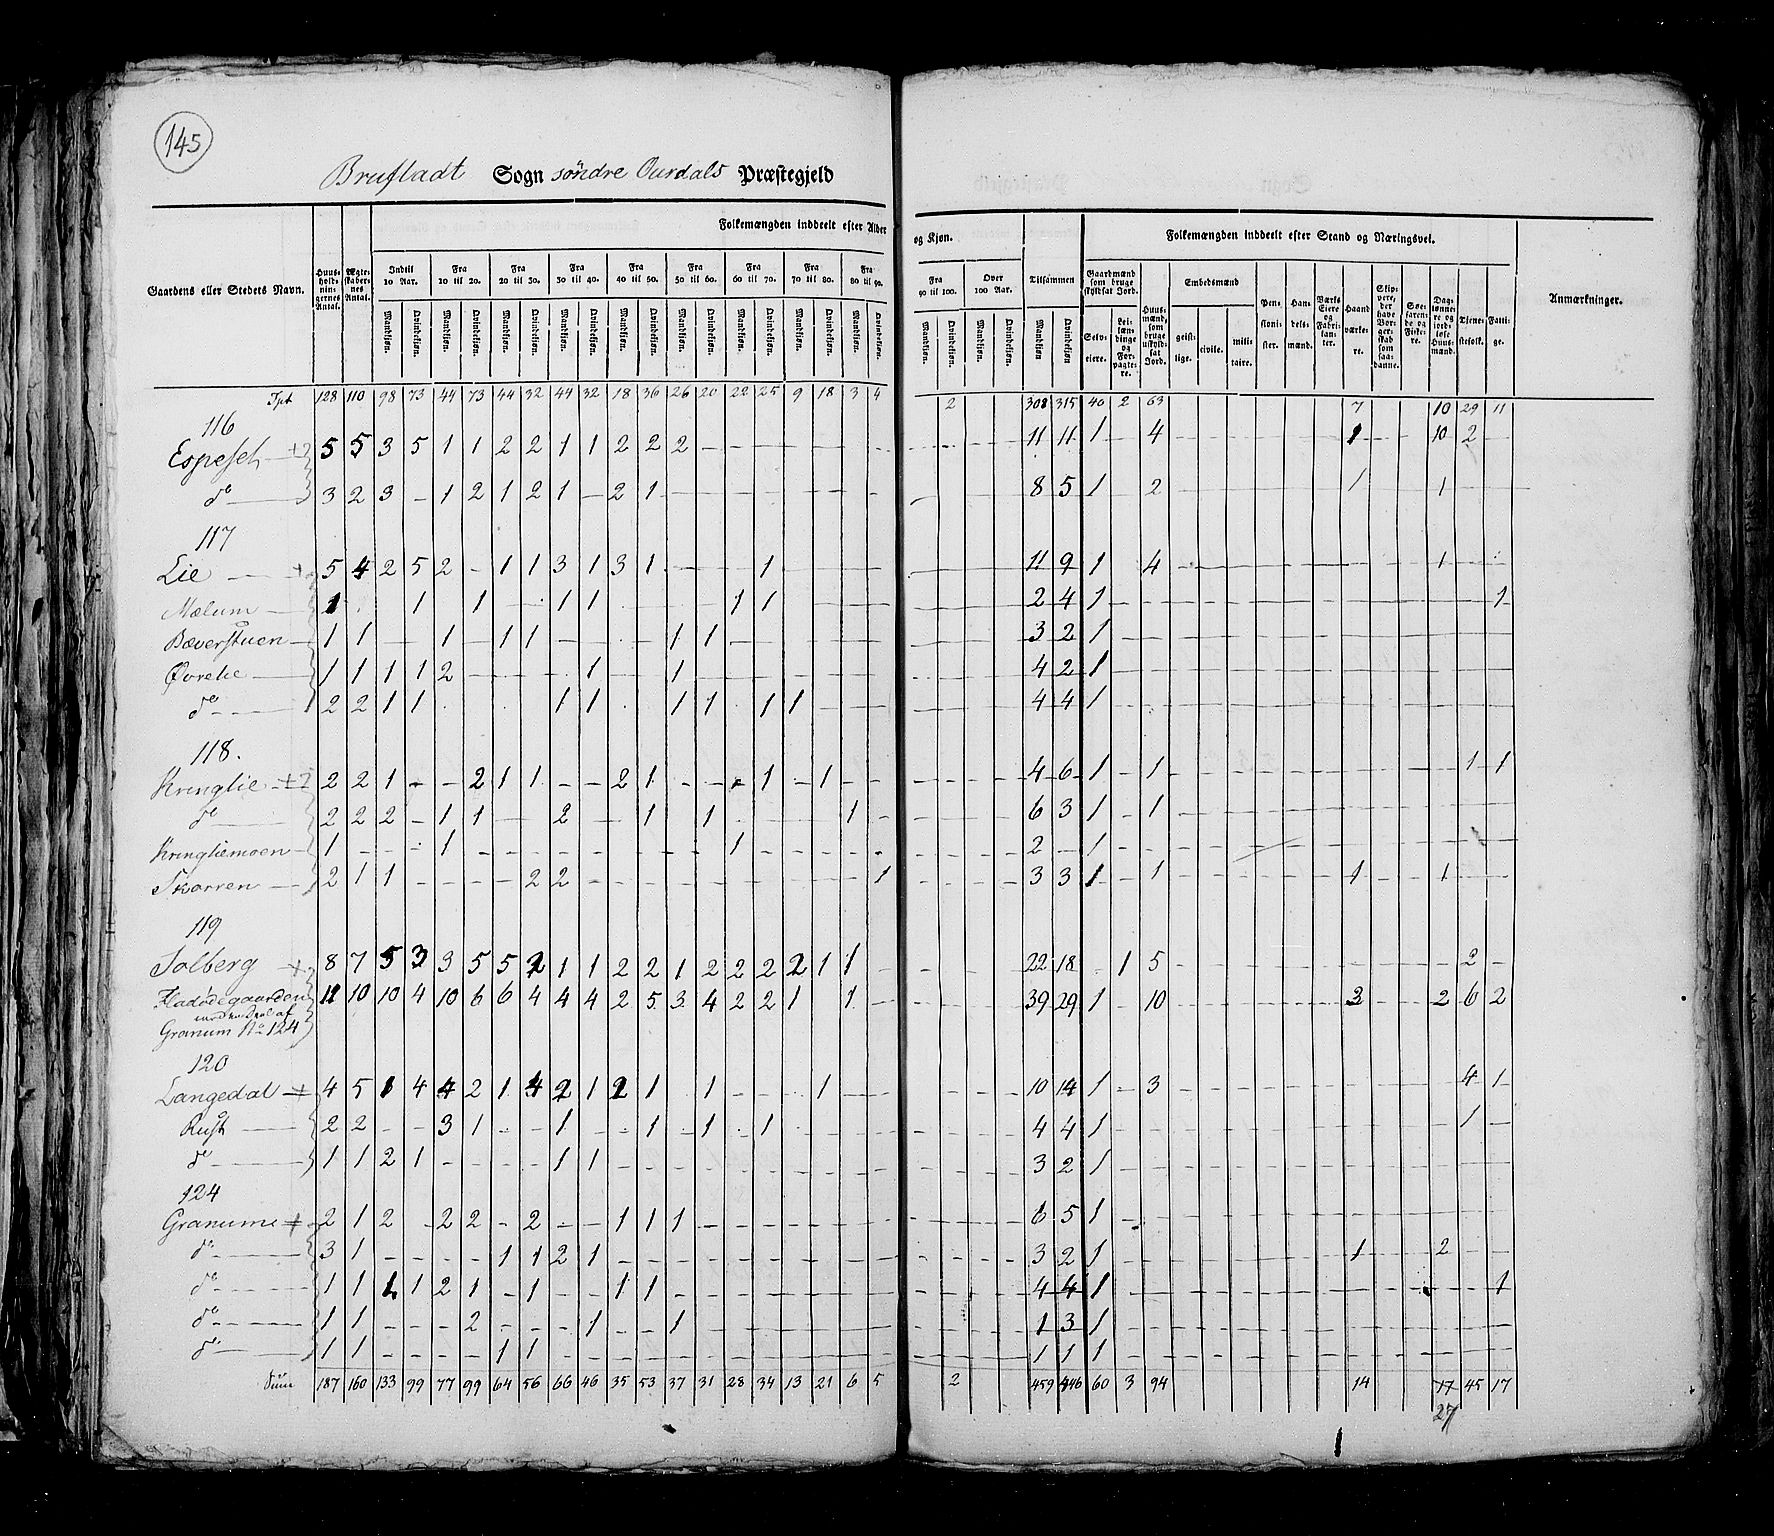 145
Brufladt Sogn söndre Ourdals Præstegjeld
Folkemængden inddeelt efter Alder og Kjøn. Folkemængden inddeelt efter Stand og Næringsvei.
Gaardens eller Stedets Navn. Huusholdningernes Antal. Ægteskabernes Antal. Indtil 10 Aar. Fra 10 til 20. Fra 20 til 30. Fra 30 til 40. Fra 40 til 50. Fra 50 til 60. Fra 60 til 70. Fra 70 til 80. Fra 80 til 90. Fra 90 til 100. Over 100 Aar. Tilsammen Gaardmænd som bruge skyldsat Jord. Huusmænd, som bruge uskyldsat Jord. Embedsmænd Pensionister. Handelsmænd. Værks Eiere og Fabrikanter. Haandværkere. Skippere, der have Borgerskab som saadanne. Søefarende og Fiskere. Daglønnere og jordløse Huusmænd. Tjenestefolk. Fattige. Anmærkninger.
Mandkiøn. Qvindekiøn. Mandkiøn. Qvindekiøn. Mandkiøn. Qvindekiøn. Mandkiøn. Qvindekiøn. Mandkiøn. Qvindekiøn. Mandkiøn. Qvindekiøn. Mandkiøn. Qvindekiøn. Mandkiøn. Qvindekiøn. Mandkiøn. Qvindekiøn. Mandkiøn. Qvindekiøn. Mandkiøn. Qvindekiøn. Mandkiøn Qvindekiøn Selveiere. Leilændinge og Forpagtere. geistlige. civile. militaire.
Tpt 128 110 98 73 44 73 44 32 44 32 18 36 26 20 22 25 9 18 3 4 2 308 315 40 2 63 7 10 29 11
116
Espeset 5 5 3 5 1 1 2 2 1 1 2 2 2 - 11 11 1 4 1 10 2
do 3 2 3 - 1 2 1 2 1 - 2 1 - 8 5 1 2 1 1
117
Lie 5 4 2 5 2 - 1 1 3 1 3 1 - 1 11 9 1 4 1
Mælum 1 1 1 1 1 1 1 2 4 1 1
Bæverstuen 1 1 - 1 - 1 1 - 1 1 - 3 2 1
Øvrelie 1 1 1 1 2 - 1 1 4 2 1
do 2 2 1 1 1 1 1 1 1 1 4 4 1
118.
Kringlie 2 2 1 - - 2 1 1 - - 2 1 - - 1 - 1 4 6 1 - 1 1 1
do 2 2 2 - 1 1 - 2 - 1 - 1 1 6 3 1 - 1
Kringliemoen 1 1 1 2 - 1
Skarren 2 1 1 - 2 2 - 1 3 3 1 - 1 1 1
119
Solberg 8 7 5 3 3 5 5 2 1 1 2 2 1 2 2 2 2 1 1 22 18 1 5 2
Fladødegaarden 11 10 10 4 10 6 6 4 4 4 2 5 3 4 2 2 1 1 39 29 1 - 10 3 2 6 2
Granum No 124
120
Langedal 4 5 1 4 4 2 1 4 2 1 2 1 1 1 10 14 1 - 3 4 1
Rust 2 2 - - 3 1 - - 1 - - 1 - 1 - 1 4 4 1 1
do 1 1 2 1 - 1 1 - 3 2 1
124
Granum 2 1 2 - 2 2 - 2 - - 1 1 1 - 6 5 1 -
do 3 1 - 1 1 2 1 - 3 2 1 1 2
do 1 1 1 1 2 1 - 1 1 1 4 4 1 1
do 1 1 - 2 - 1 - - 1 - 1 3 1
do 1 1 - 1 1 - 1 1 1
Sum 187 160 133 99 77 99 64 56 66 46 35 53 37 31 28 34 13 21 6 5 2 459 446 60 3 94 14 17 45 17
27